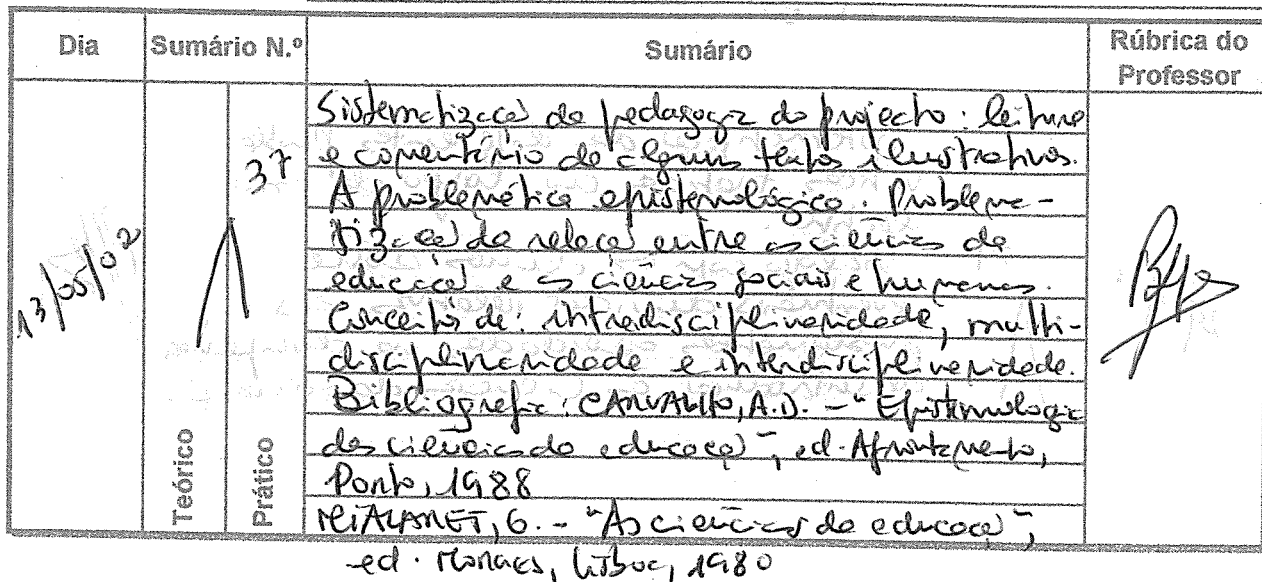 Dia Sumário N.º Sumário Rúbrica do Professor
Teórico Prático
13/05/02
37
Sistematização da pedagogia do projecto: leitura
e comentário de alguns textos ilustrativos.
A problemática epistemológica. Problema-
tização da relação entre as ciências da
educação e as ciências sociais e humanas.
Conceitos de: intradisciplinaridade, multi-
disciplinaridade e interdisciplinaridade.
Bibliografia: CARVALHO, A.D. - "Epistemologia
das ciências da educação", ed. Afrontamento,
Porto, 1988
MIALARET, G. - "As ciências da educação",
ed. Moraes, Lisboa, 1980